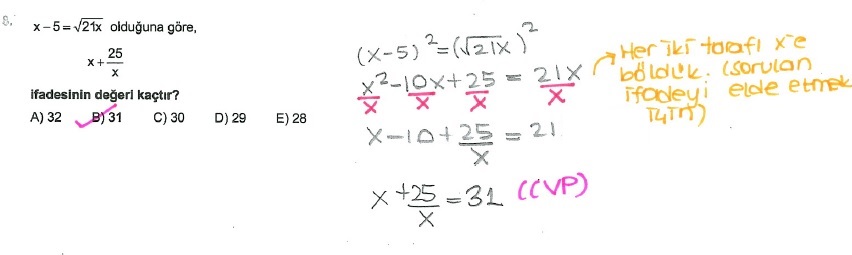 8.
x-5=√21x olduğuna göre,
x+25/x
ifadesinin değeri kaçtır?
A) 32 B) 31 C) 30 D) 29 E) 28
(x-5)²=(√21x)²
x²/x-10x/x+25/x = 21x/x
x-10+25/x = 21
x+25/x=31 (CVP)
→ Her iki tarafı x'e
böldük. (sorulan
ifadeyi elde etmek
için)